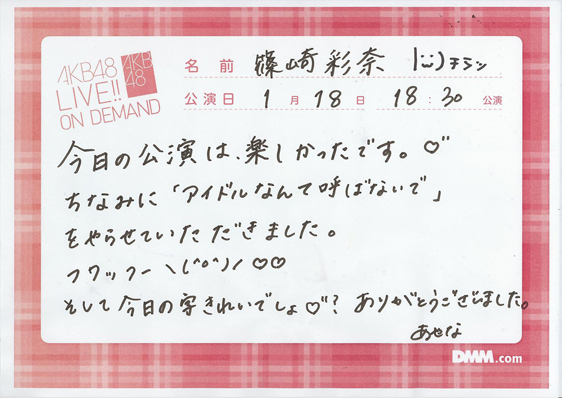 AKB48
LIVE!!
ON DEMAND
AKB
48
名前 篠崎彩奈 |ω・)チラッ
公演日 1月18日 18:30 公演
今日の公演は、楽しかったです。♡
ちなみに「アイドルなんて呼ばないで」
をやらせていただきました。
フワッフー \(^o^)/ ♡♡
そして今日の字きれいでしょ♡? ありがとうございました。
あやな
DMM.com